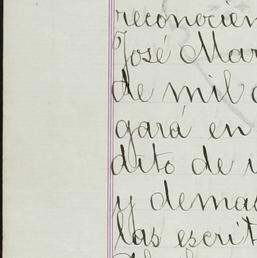 reconocien
José Mar
de mil
gará en
dito de
y demas
las escrit